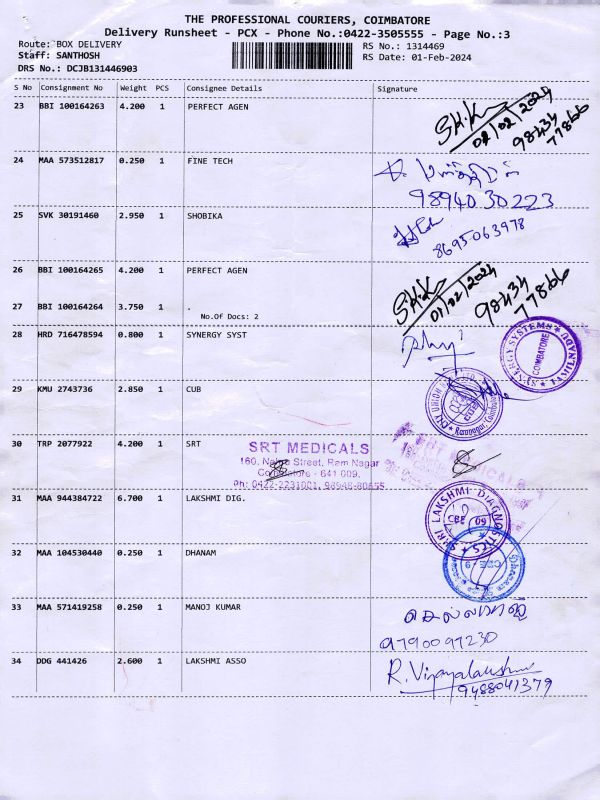 THE PROFESSIONAL COURIERS, COIMBATORE
Delivery Runsheet - PCX - Phone No.:0422-3505555 - Page No.:3
Route: BOX DELIVERY
RS No.: 1314469
Staff: SANTHOSH
RS Date: 01-Feb-2024
DRS No.: DCJB131446903
S No Consignment No Weight PCS Consignee Details Signature
23 BBI 100164263 4.200 1 PERFECT AGEN
01/02/2024
98434
77866
24 MAA 573512817 0.250 1 FINE TECH
98940 30223
25 SVK 30191460 2.950 1 SHOBIKA
8695063978
26 BBI 100164265 4.200 1 PERFECT AGEN
01/02/2024
98434
77866
27 BBI 100164264 3.750 1 .
No.Of Docs: 2
28 HRD 716478594 0.800 1 SYNERGY SYST
SYNERGY SYSTEMS
COIMBATORE
TAMILNADU
29 KMU 2743736 2.850 1 CUB
CITY UNION
Ramnagar, Coimbatore
30 TRP 2077922 4.200 1 SRT
SRT MEDICALS
Street, Ram Nagar
Coimbatore - 641 009.
Ph: 0422-2231001, 98948-80655
31 MAA 944384722 6.700 1 LAKSHMI DIG.
SHRI LAKSHMI DIAGNOSTICS
CBE 09
32 MAA 104530440 0.250 1 DHANAM
CBE-9
33 MAA 571419258 0.250 1 MANOJ KUMAR
9790097230
34 DDG 441426 2.600 1 LAKSHMI ASSO
R. Vijayalakshmi
9488041379